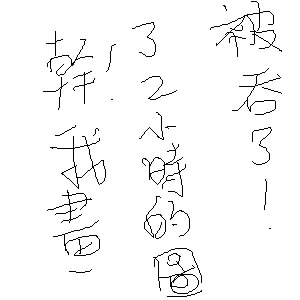 幹!我畫
了2小時的圖
被吞了!